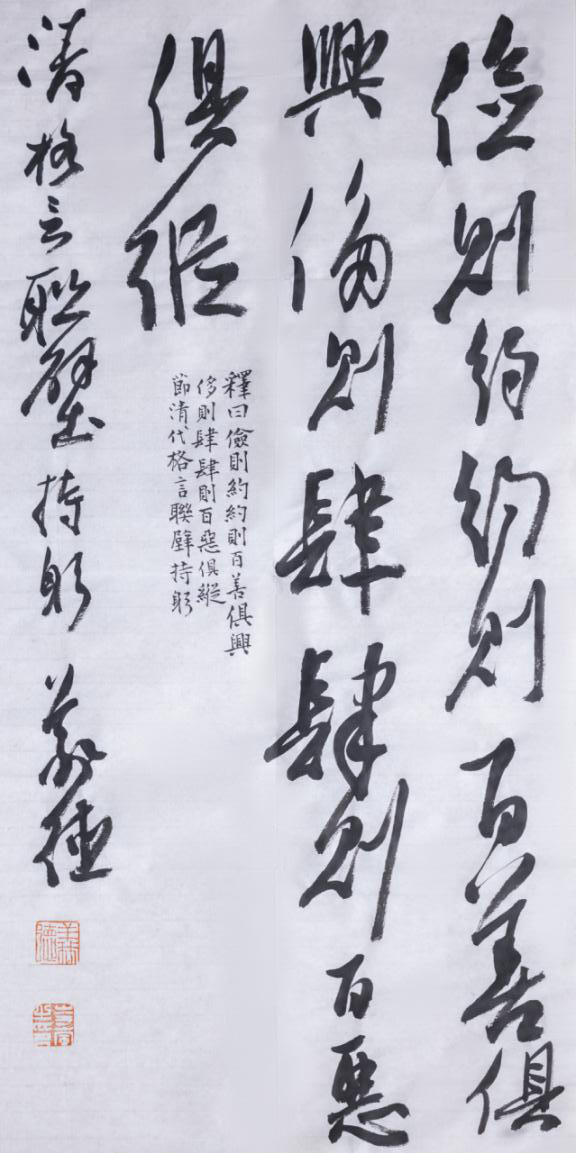 儉則約約則百善俱
興侈則肆肆則百惡
俱縱
釋曰儉則約約則百善俱興
侈則肆肆則百惡俱縱
節清代格言聯壁持躬
清格言聯壁持躬義德